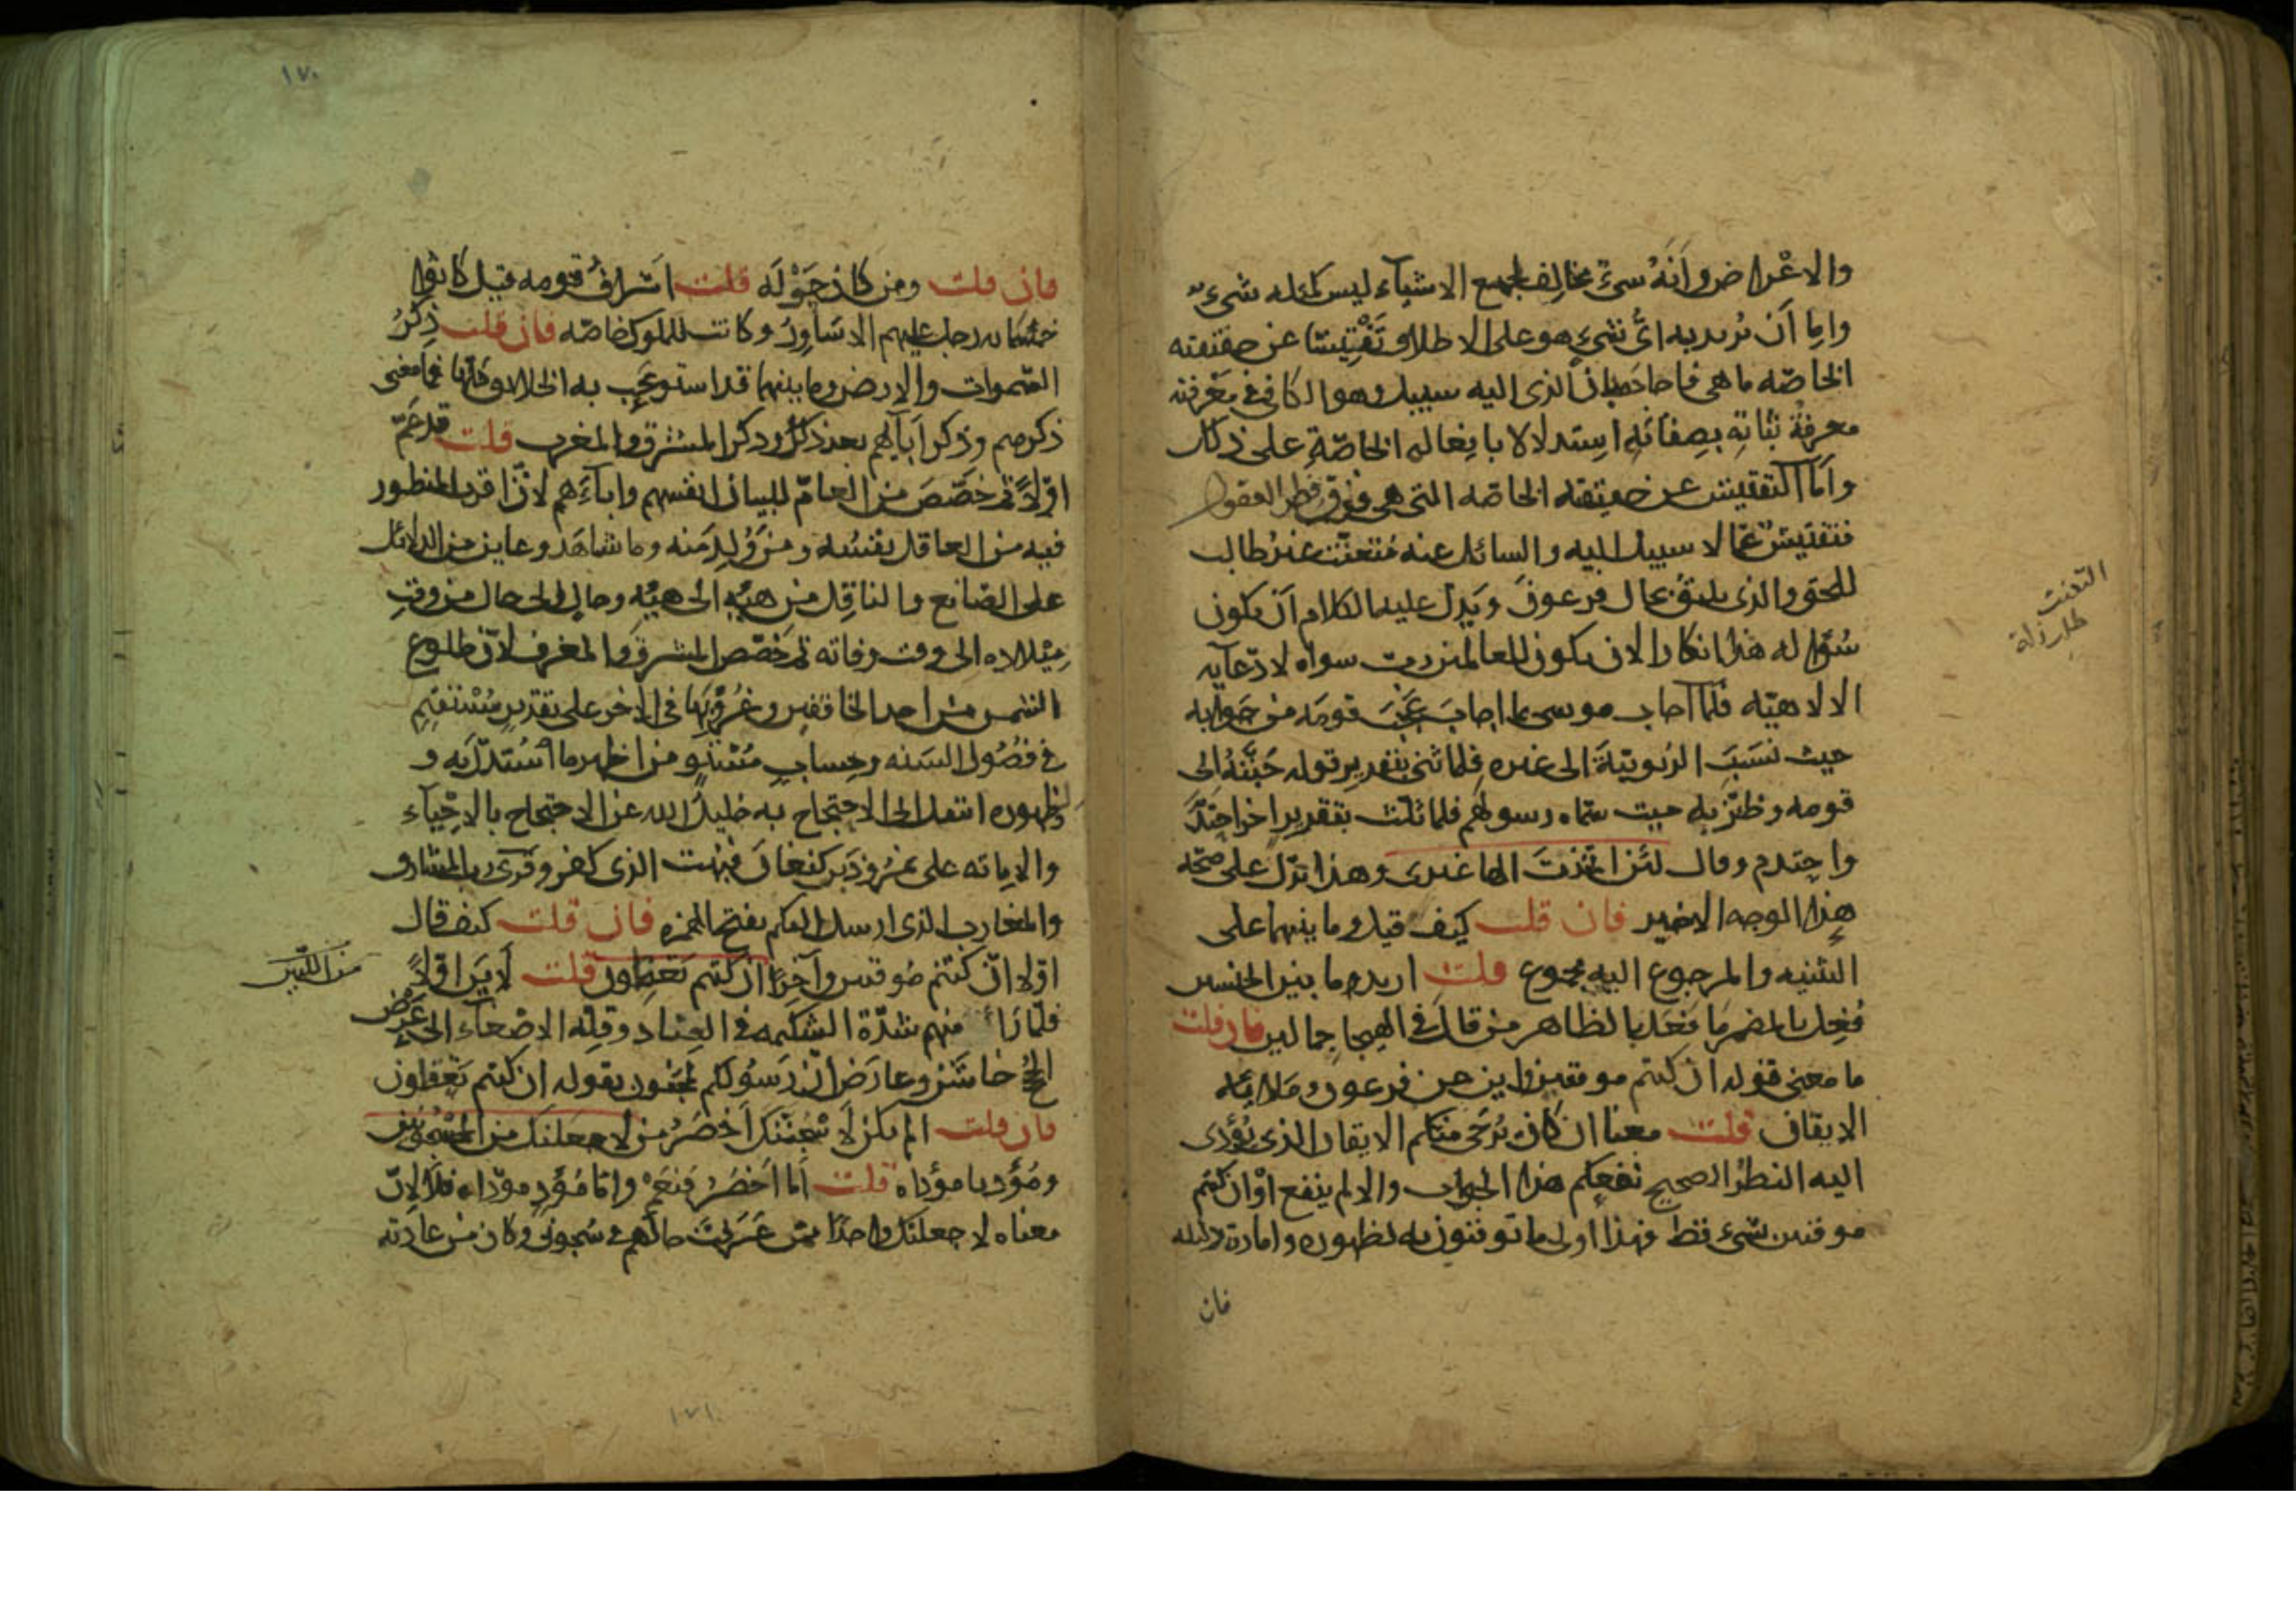 والاعْراض وأنّه شىءٌ مخالف لجميع الاشياء ليس كمثله شىء
واما أن يريد به اىُّ شىء هو على الاطلاق تَفْتِيشًا عن حقيقته
الخاصّه ما هى فاجابه بان الذى اليه سبيل وهو الكافى فى مَعْرفته
معرفة ثباته بصِفاته استدلالا بافعاله الخاصّةِ على ذلك
وأمّا التفتيش عن حقيقته الخاصّه التى هى فوق فطر العقول
فتفتيشٌ عمّا لا سبيل اليه والسائل عنه متعنّت غير طالب
للحق والذى يليقُ بحال فرعونَ ويَدلّ عليه الكلام أن يكون
سُؤاله هذا انكارا لان يكون للعالمين ربّ سواه لادّعآيه
الالاهيّه فلمّا اجاب موسى بما اجاب عَجّبَ قومَه من جوابه
حيث نسَبَ الربوبيّةَ الى غيره فلما ثنّى بتقرير قوله جَنَّنهُ الى
قومه وطَنّز به حيث سمّاه رسولهم فلما ثلّث بتقرير اخر احتدَّ
واحتدم وقال لئن اتخذتَ الها غيرى وهذا يدل على صحّه
هذا الوجه الاخير فان قلت كيف قيل وما بينهما على
التثنيه والمرجوع اليه مجموع قلت اريد وما بين الجنسين
فُعِل بالمضمر مَا فُعَل بالظاهر من قال فى الهيجا جمالين فان قلت
ما معنى قوله ان كنتم موقنين واين عن فرعون وملائه
الايقان قلت معناه ان كان يُرْجَى منكم الايقان الذى يُؤدى
اليه النظرُ الصحيح نفعكم هذا الجواب والا لم ينفع اوْ ان كنتم
موقنين بشىء قط فهذا اولى ما توقنون به لظهوره وامارة دليله
فان
التعنت
طلب زلة
١٧٠
فان قلت ومن كان حَوْلَه قلت اشرافُ قومه قيل كانوا
خمسمايه رجل عليهم الاسَاوِرُ وكانت للملوك خاصّه فان قلت ذِكْرُ
السّموات والارض وما بينهما قد استوعَب به الخلائق كلها فما معنى
ذكرهم وذكر آبآيهم بعد ذلك وذكر المشرق والمغرب قلت قد عَمّ
اوّلاً ثم خصّصَ من العامّ للبيان انفسهم وابآءَهم لانّ اقرب المنظور
فيه من العاقل نفسُه ومن وُلِدَ منه وما شاهَد وعاين من الدلائل
على الصّانع والناقِل من هيْئه الى هيْئه وحال الى حال من وقتِ
مِيْلاده الى وقت وفاته ثم خصّص المشرق والمغرب لانّ طلوع
الشمس من احد الخافقين وغُرُوبَها فى الاخر على تقدير مُسْتقيم
فى فصُول السَنه وحِساب مُسْتَوٍ من اظهر ما اسْتُدلّ به و
لظهوره انتقل الى الاحتجاج به خليلُ الله عن الاحتجاج بالاحْيآء
والاماته على نمرُوذ بن كنعانَ فبُهت الذى كفر وقرئ رب المشارق
والمغارب الذى ارسل اليكم بفتح الهمزه فان قلت كيف قال
اوّلا ان كنتم مُوقنين وآخِرًا ان كنتم تعقلون قلت لَايَنَ اوّلاً
فلمّا رأى منهم شدّة الشكيمه فى العِناد وقلّه الاصْغآء الى عَرْض
الحُجج خاشَن وعارَض انّ رَسُولكم لمجنون بقوله ان كنتم تَعْقلون
فان قلت الم يكن لاَسْجُنَنَّك أخصَرُ من لاجعلنك من المسْجُونين
ومُؤديا مؤداه قلت أما اَخْصَرُ فنَعَمْ واما مُؤدٍ مؤدّاه فلا لانّ
معناه لاجعلنّك واحدًا ممّن عَرفتَ حالَهم فى سُجونى وكان من عادته
من التليين
١٧١